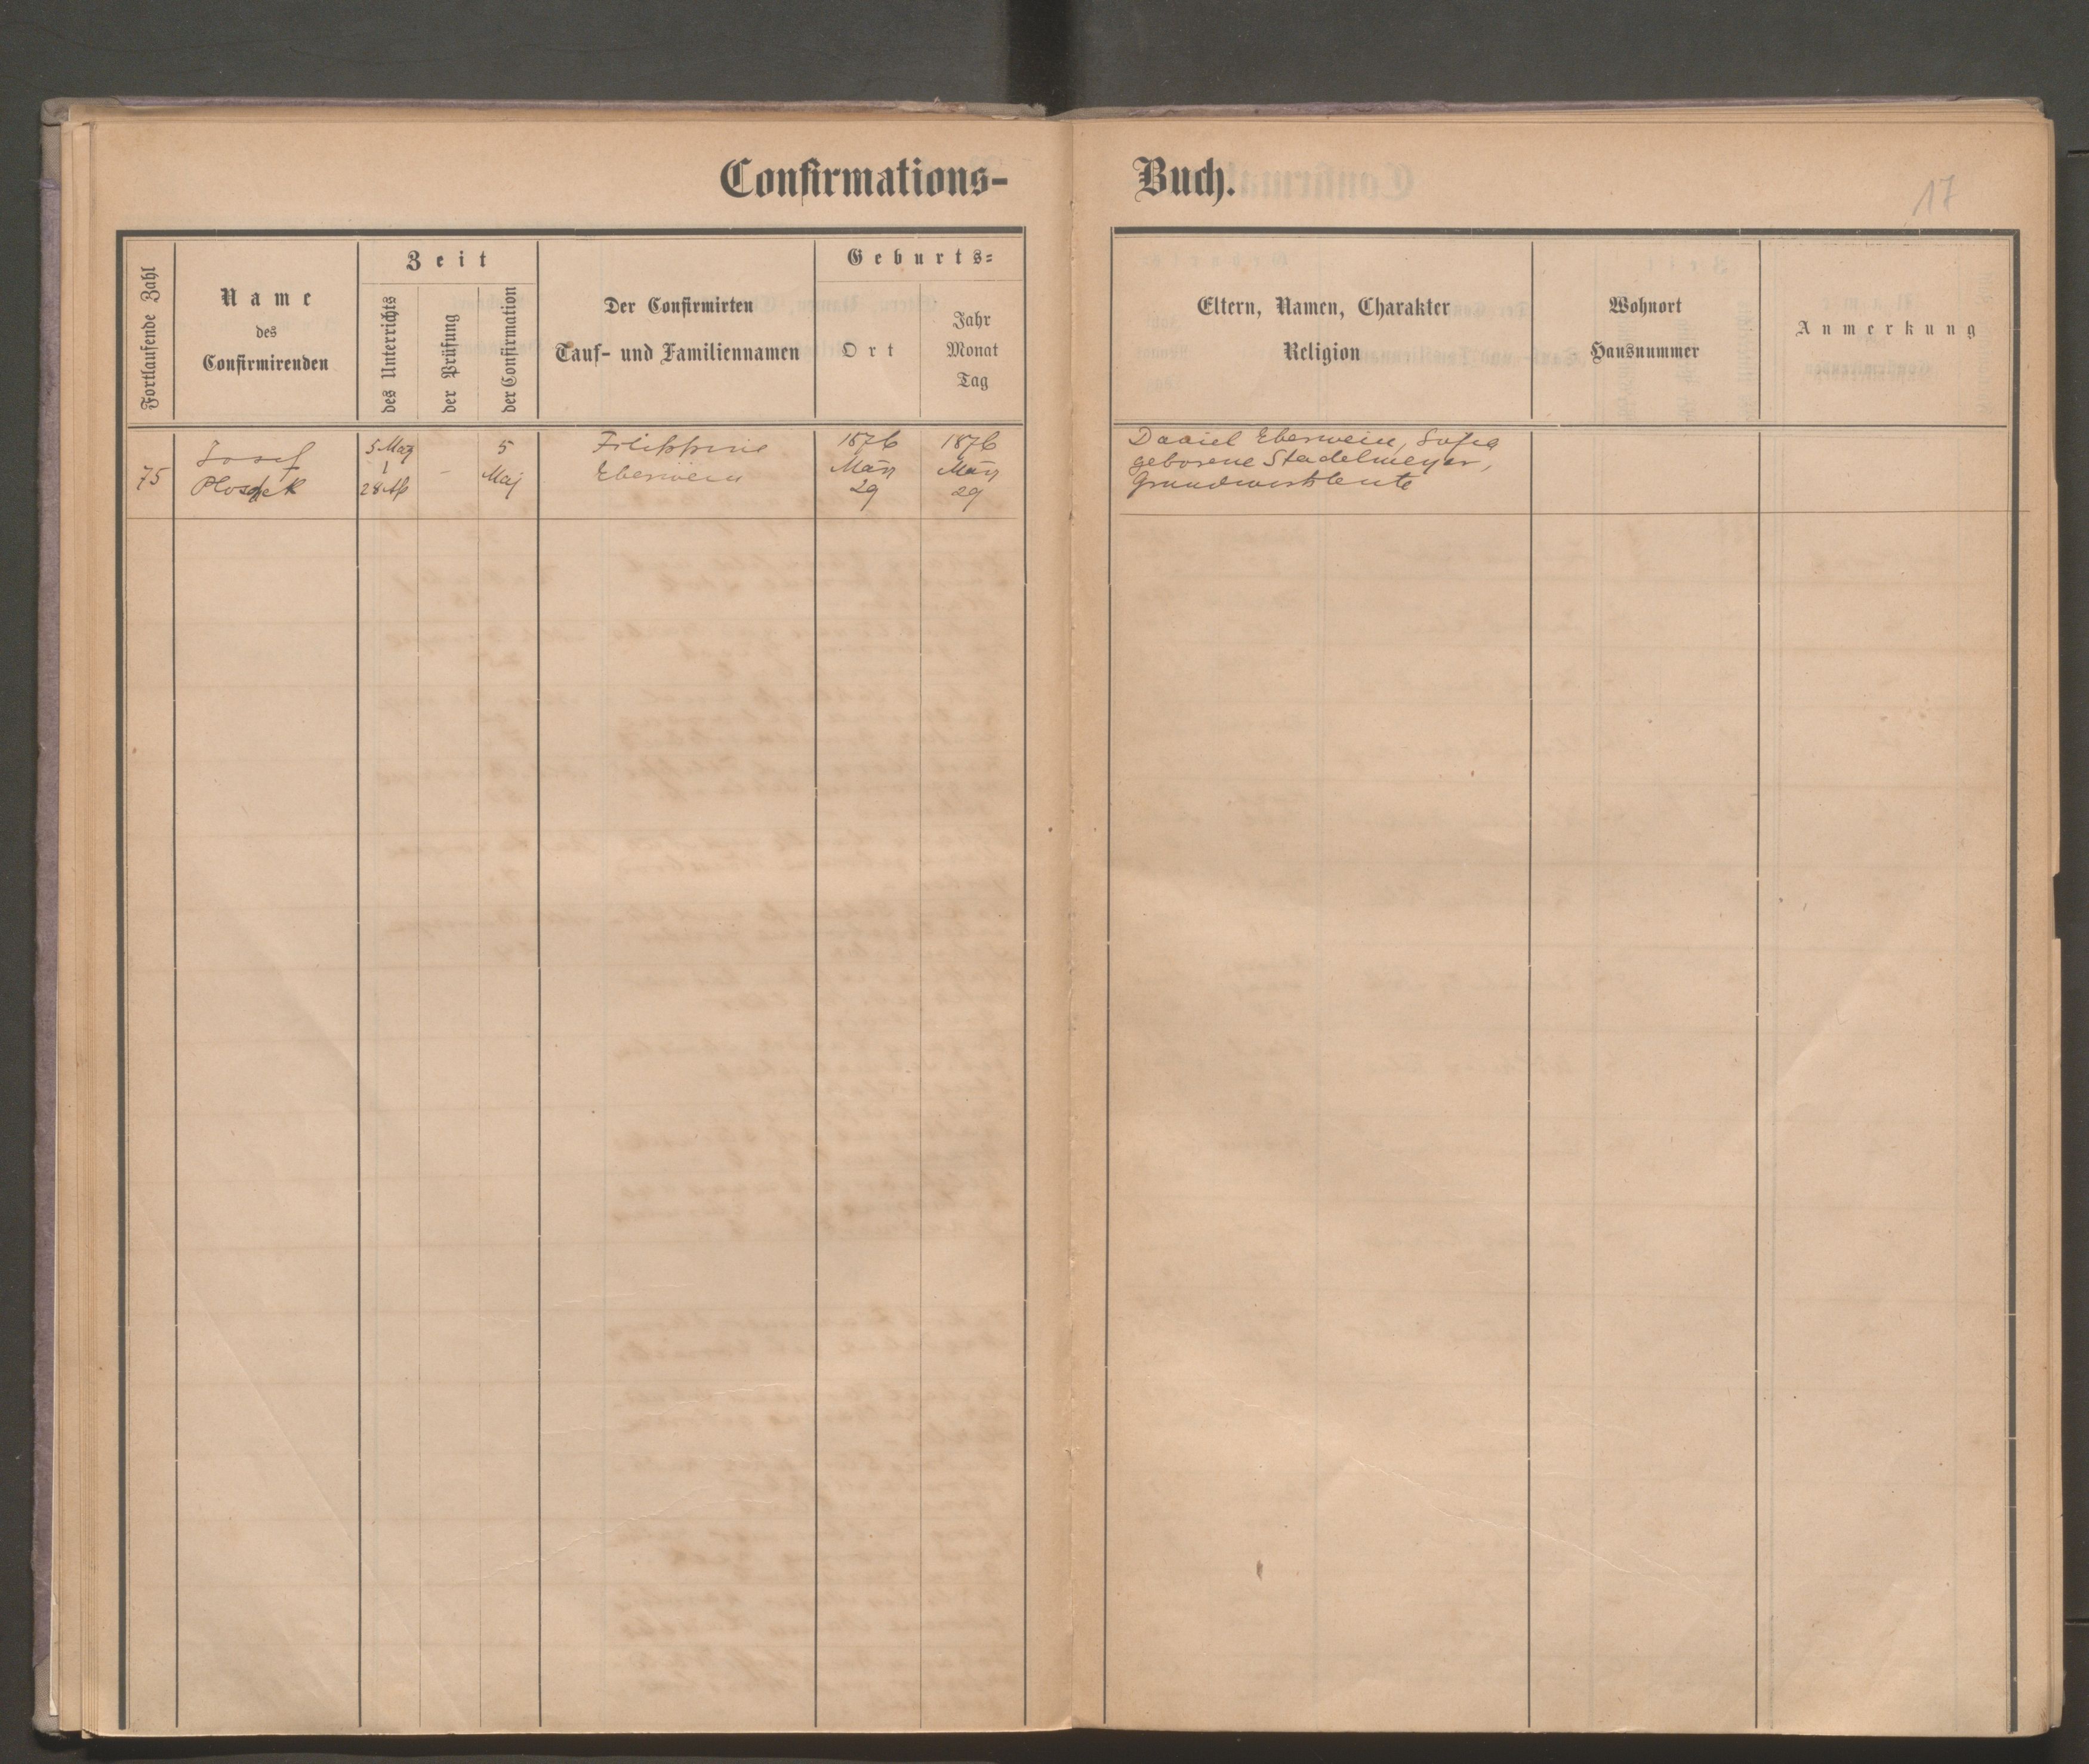 Confirmations-
Buch.
17
Fortlaufende Zahl
Name
des
Confirmirenden
Zeit
des Unterrichts
der Prüfung
der Confirmation
Der Confirmirten
Tauf- und Familiennamen
Geburts-
Ort
Jahr
Monat
Tag
Eltern, Namen, Charakter
Religion
Wohnort
Hausnummer
Anmerkung
75
Josef
5 März
28 Ap
-
5
Maj
Filippine
Eberwein
1876
März
29
1876
März
29
Daniel Eberwein, Sofia
geborene Stadelmeyer,
Grundwirthleute